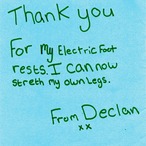 Thank you
For my Electric Foot
rests. I can now
streth my own legs.
From Declan
xx